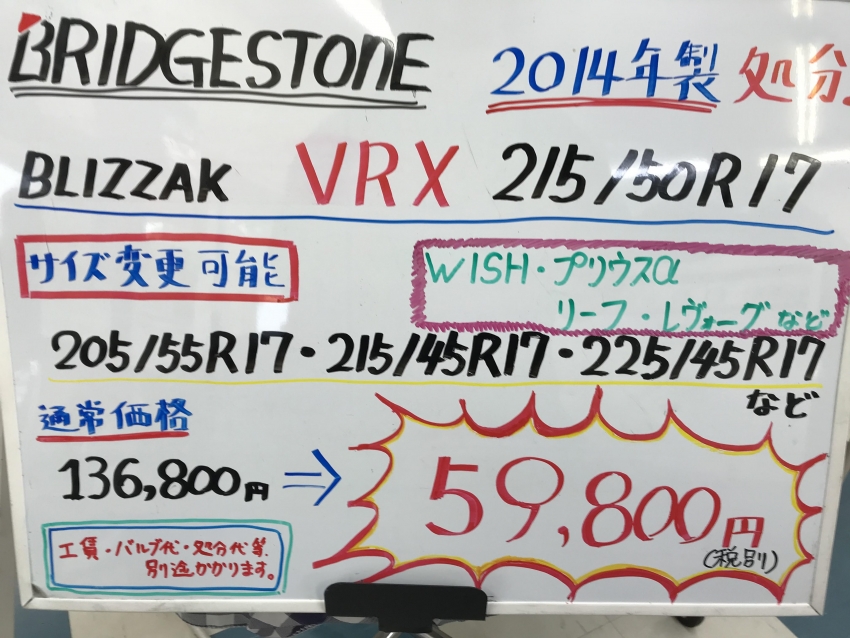 BRIDGESTONE 2014年製 処分!
BLIZZAK VRX 215/50R17
サイズ変更可能
WISH・プリウスα
リーフ・レヴォーグなど
205/55R17・215/45R17・225/45R17
など
通常価格
136,800円 ⇒ 59,800円
(税別)
工賃・バルブ代・処分代等
別途かかります。